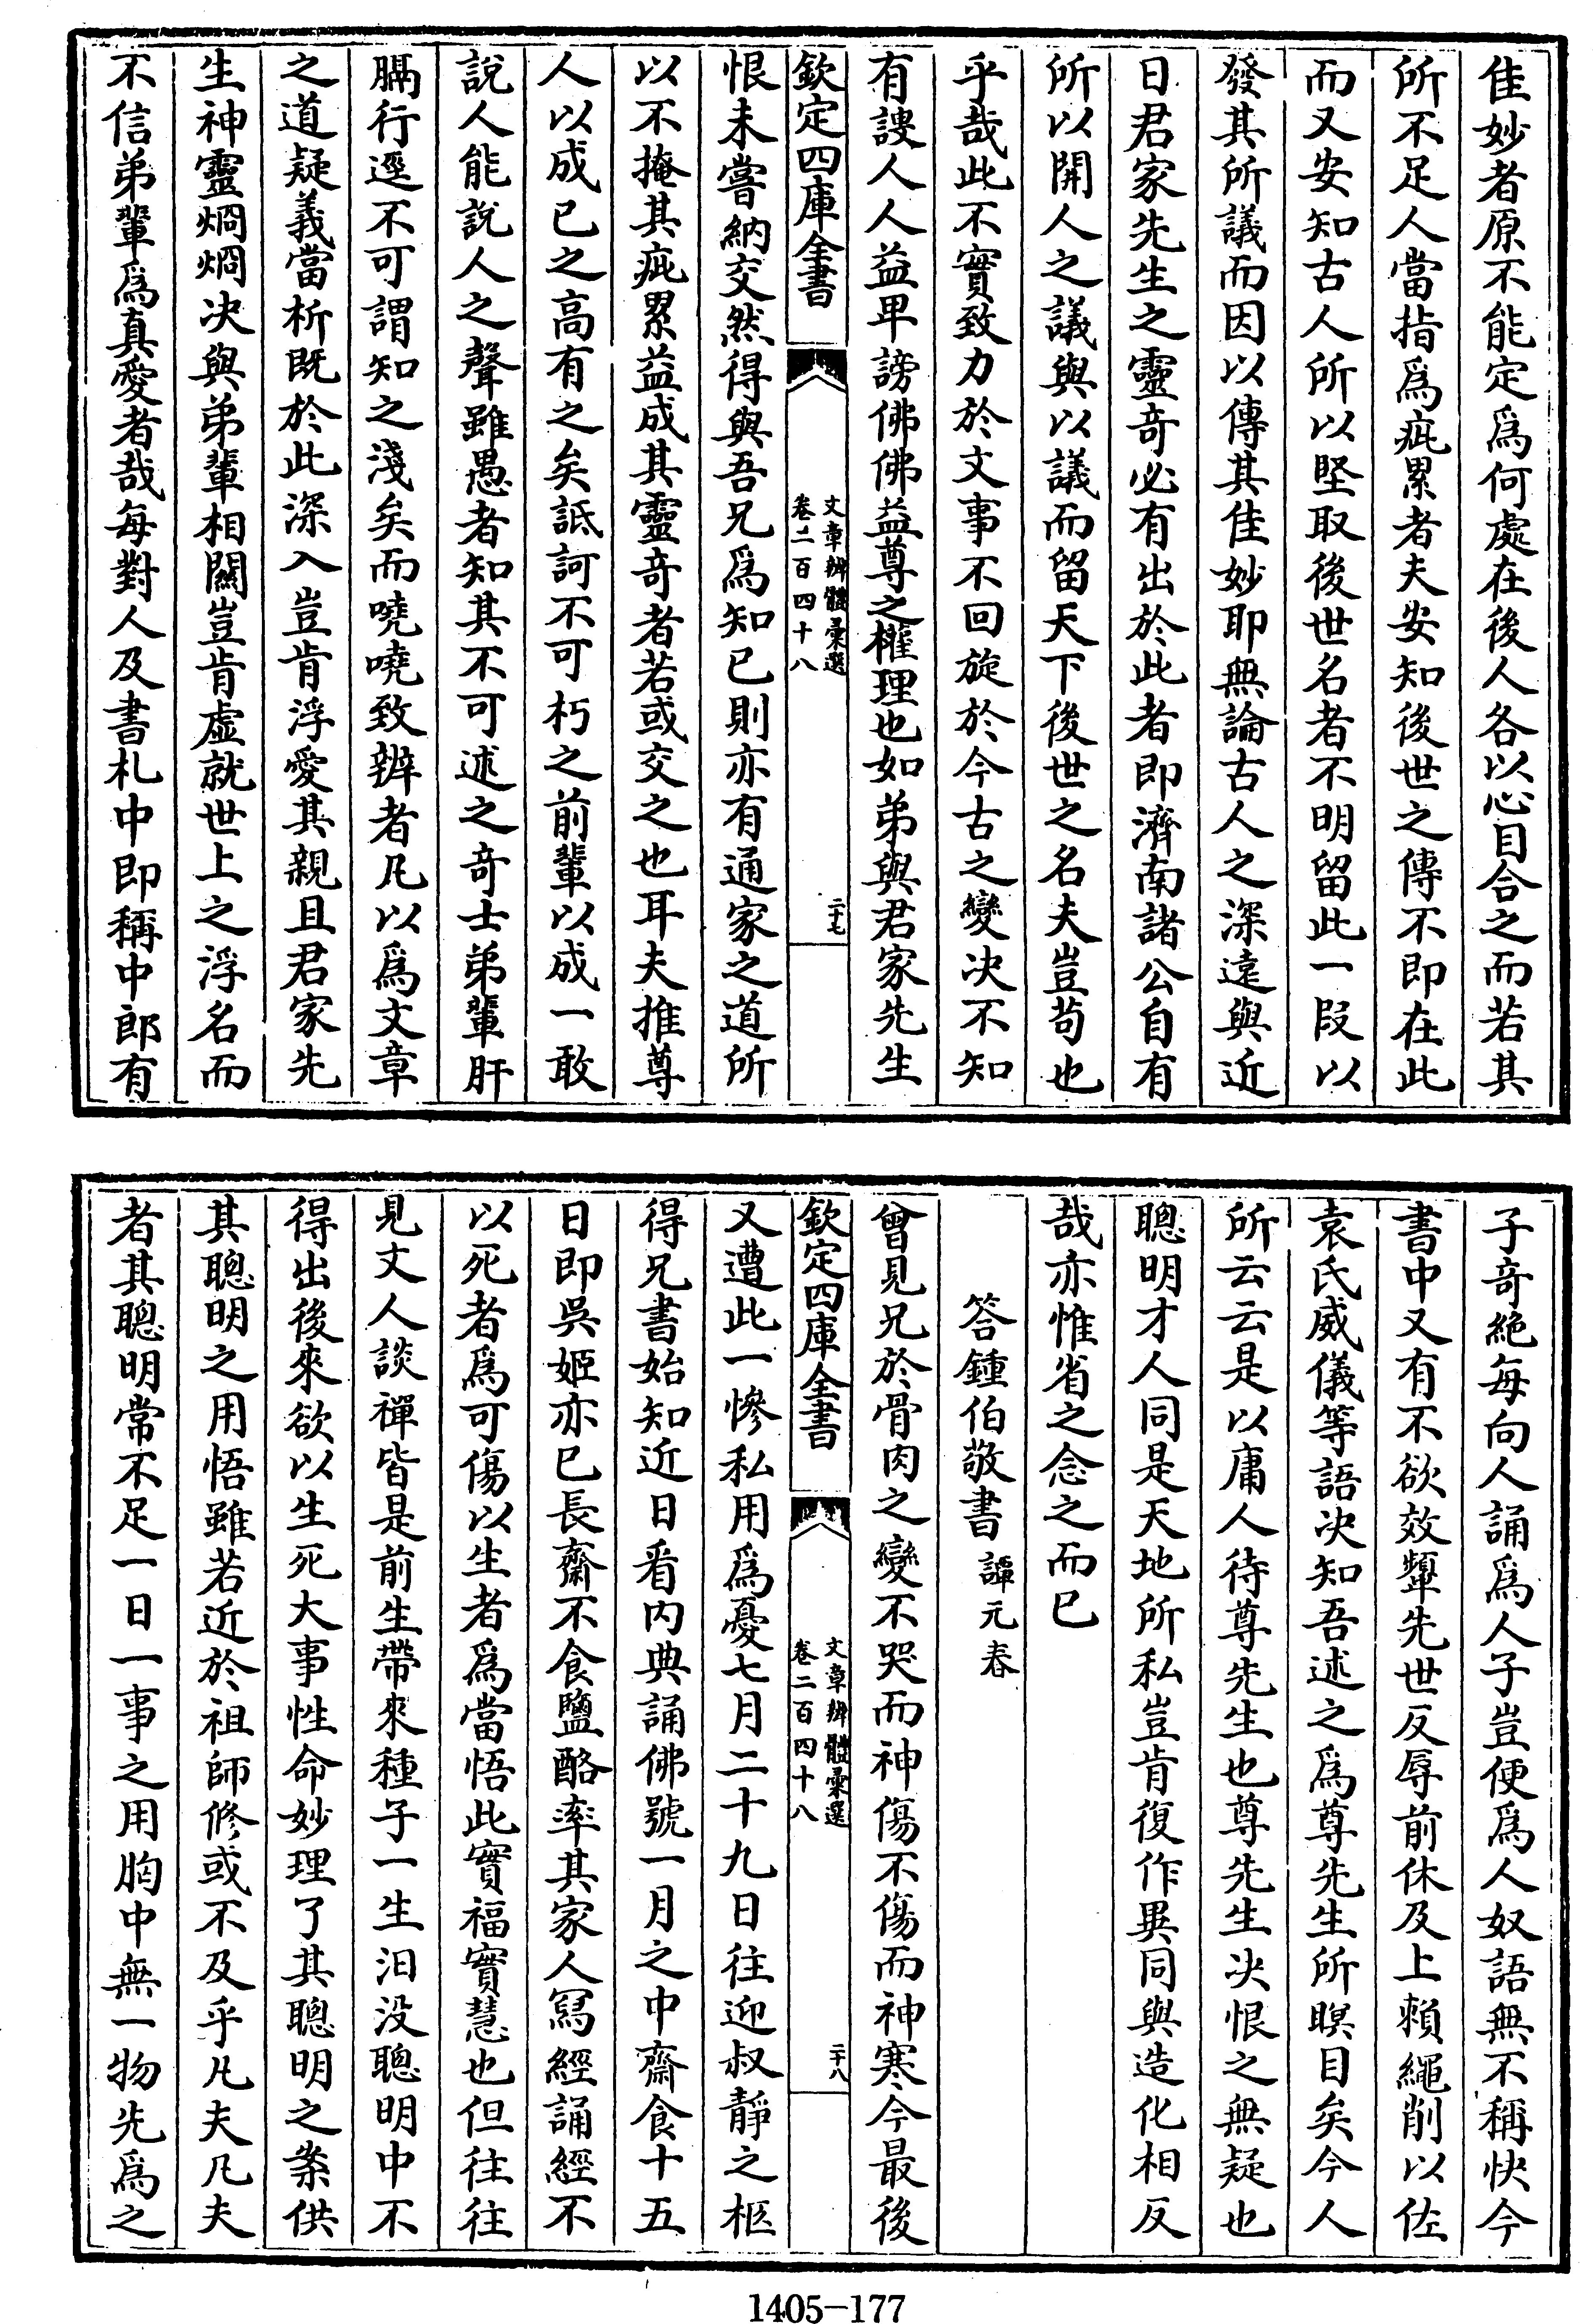 佳妙者原不能定爲何處在後人各以心目合之而若其
所不足人當指爲疵累者夫安知後世之傳不即在此
而又安知古人所以堅取後世名者不明留此一段以
發其所議而因以傳其佳妙耶無論古人之深遠與近
日君家先生之靈奇必有出於此者即濟南諸公自有
所以開人之議與以議而留天下後世之名夫豈苟也
乎哉此不實致力於文事不回旋於今古之變决不知
有謏人人益卑謗佛佛益尊之權理也如弟與君家先生
欽定四庫全書
文章辨體彙選
卷二百四十八
二十七
恨未嘗納交然得與吾兄爲知已則亦有通家之道所
以不掩其疵累益成其靈奇者若或交之也耳夫推尊
人以成已之高有之矣詆訶不可朽之前輩以成一敢
說人能說人之聲雖愚者知其不可述之奇士弟輩肝
膈行逕不可謂知之淺矣而嘵嘵致辨者凡以爲文章
之道疑義當析既於此深入豈肯浮愛其親且君家先
生神靈烱烱决與弟輩相關豈肯虛就世上之浮名而
不信弟輩爲真愛者哉每對人及書札中即稱中郎有
子奇絶每向人誦爲人子豈便爲人奴語無不稱快今
書中又有不欲效顰先世反辱前休及上賴繩削以佐
袁氏威儀等語决知吾述之爲尊先生所瞑目矣今人
所云云是以庸人待尊先生也尊先生决恨之無疑也
聰明才人同是天地所私豈肯復作異同與造化相反
哉亦惟省之念之而已
答鍾伯敬書 譚元春
曾見兄於骨肉之變不哭而神傷不傷而神寒今最後
欽定四庫全書
文章辨體彙選
卷二百四十八
二十八
又遭此一慘私用爲憂七月二十九日往迎叔靜之柩
得兄書始知近日看内典誦佛號一月之中齋食十五
日即吳姬亦已長齋不食鹽酪率其家人冩經誦經不
以死者爲可傷以生者爲當悟此實福實慧也但往往
見丈人談禪皆是前生帶來種子一生汩没聰明中不
得出後來欲以生死大事性命妙理了其聰明之案供
其聰明之用悟雖若近於祖師修或不及乎凡夫凡夫
者其聰明常不足一日一事之用胸中無一物先爲之
1405-177